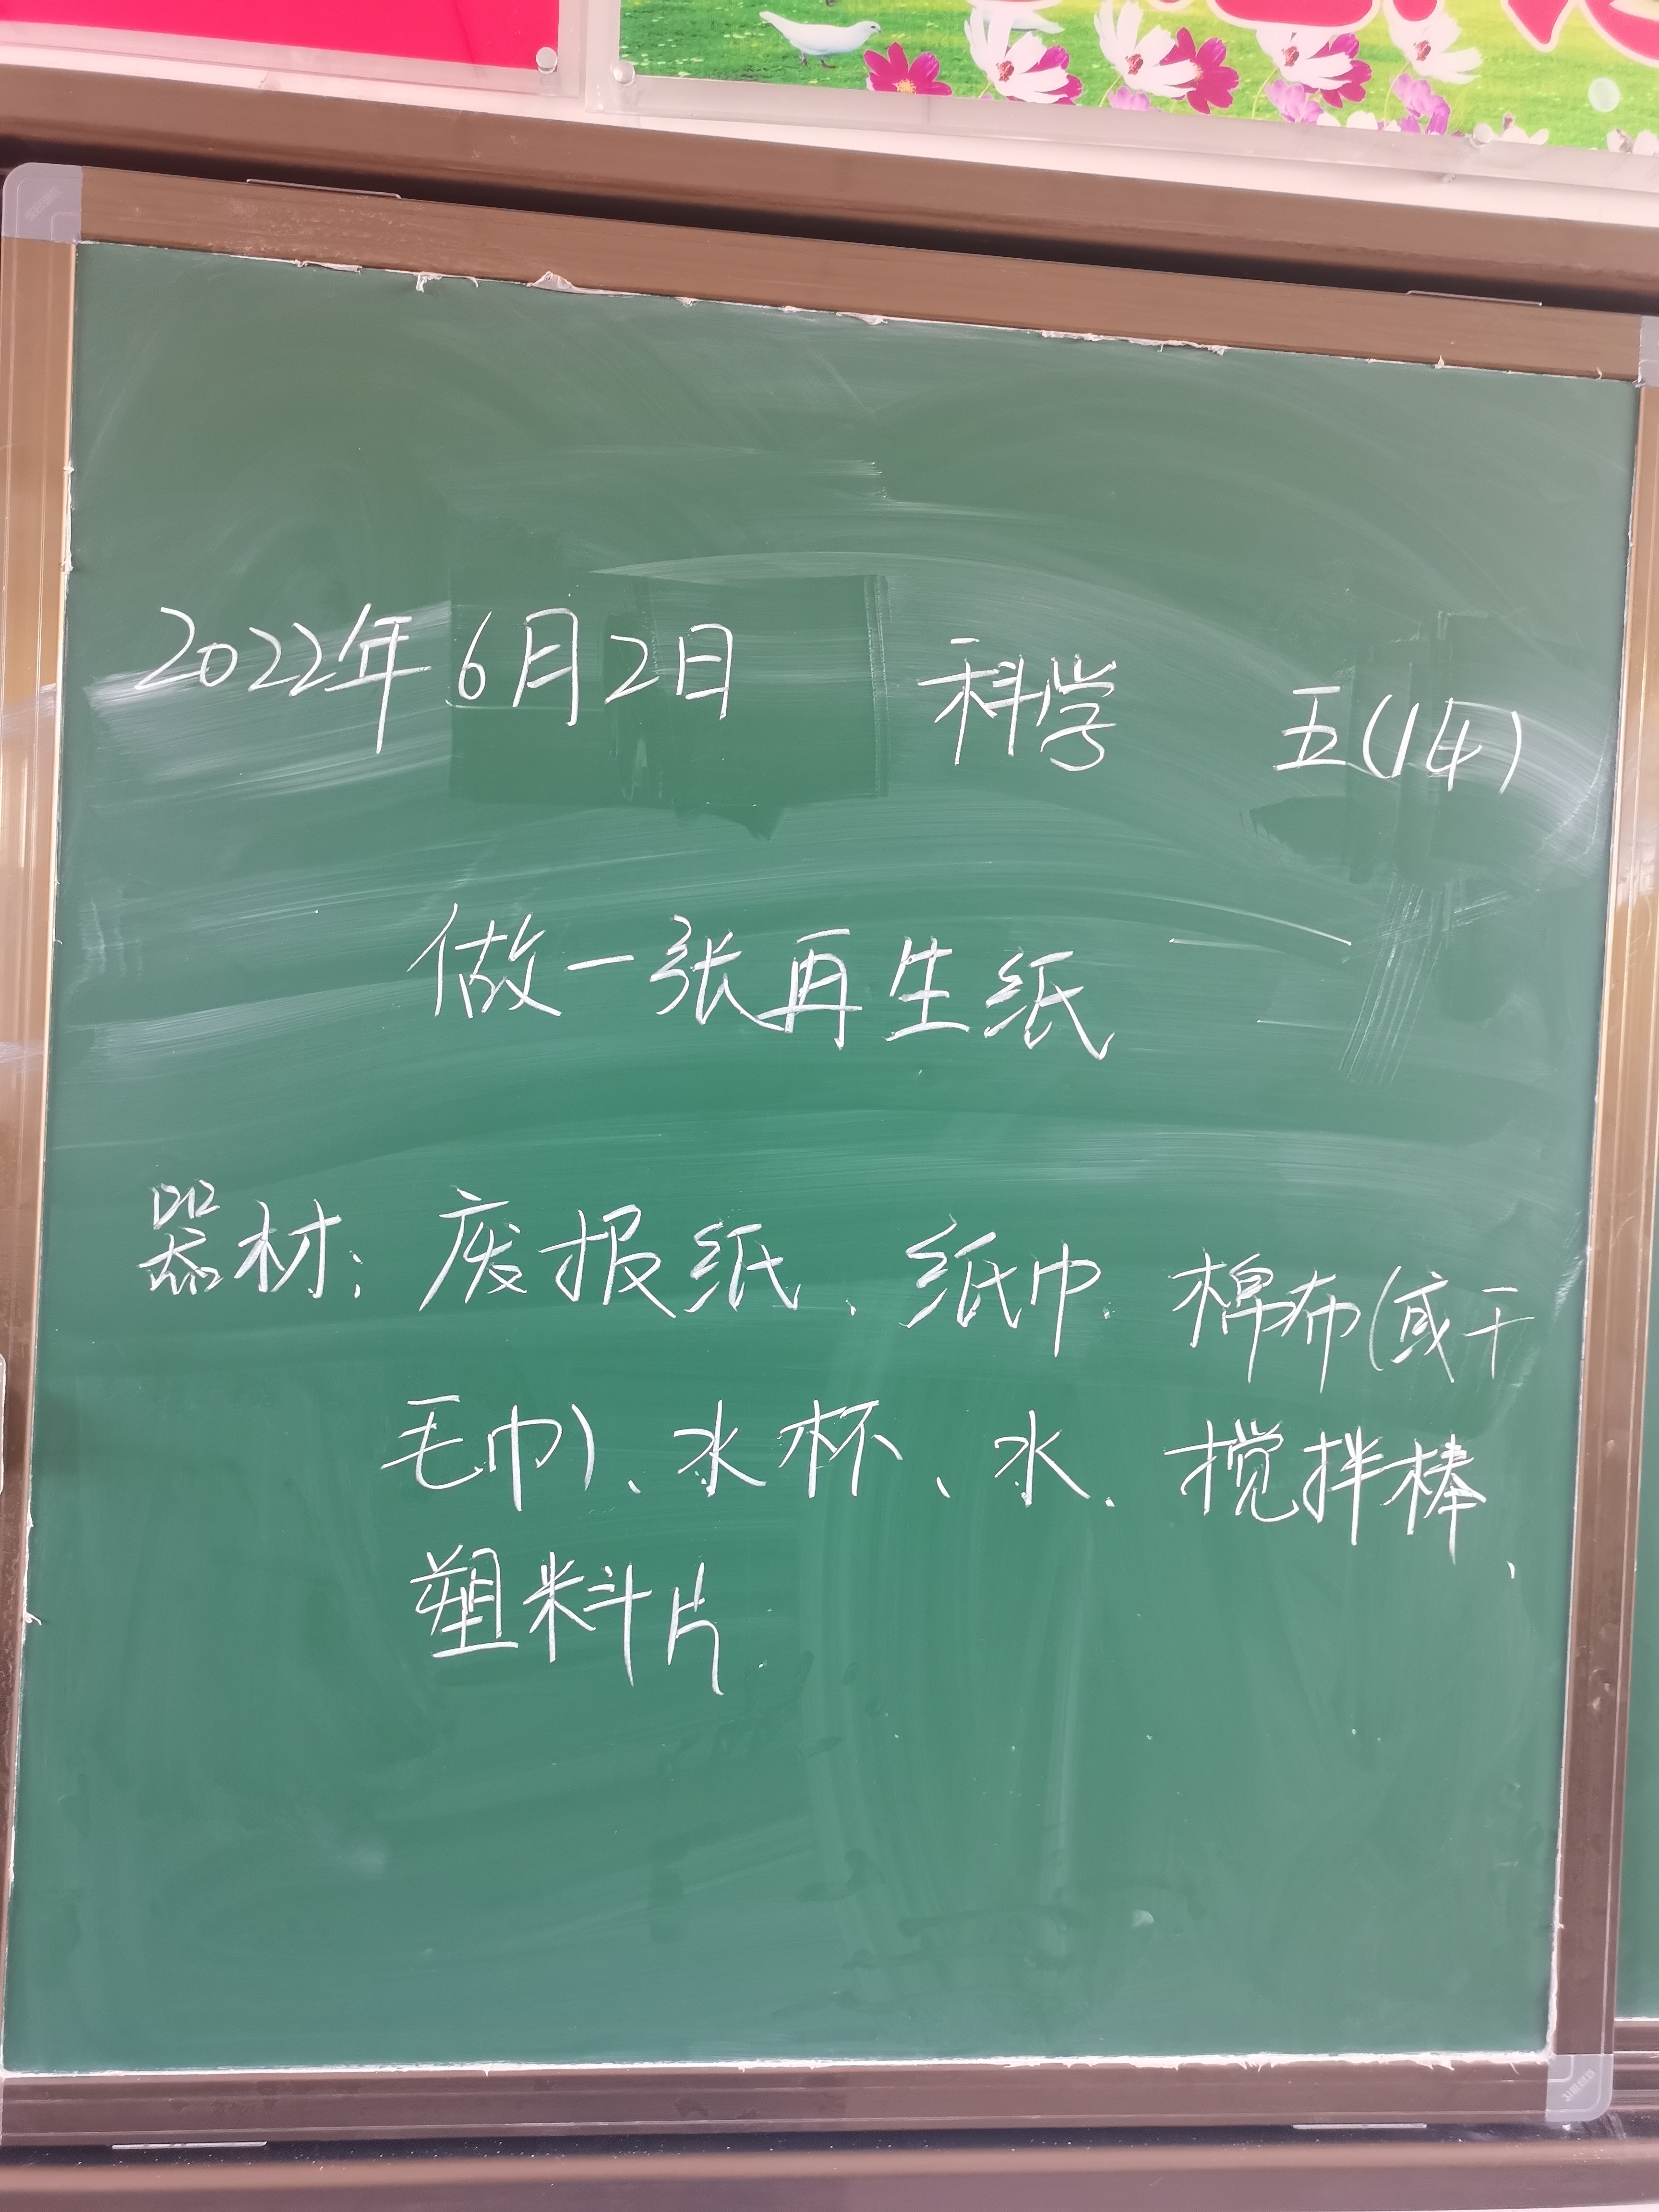 2022年6月2日 科学 五(14)
做一张再生纸
器材：废报纸、纸巾、棉布(或干
毛巾)、水杯、水、搅拌棒、
塑料片.